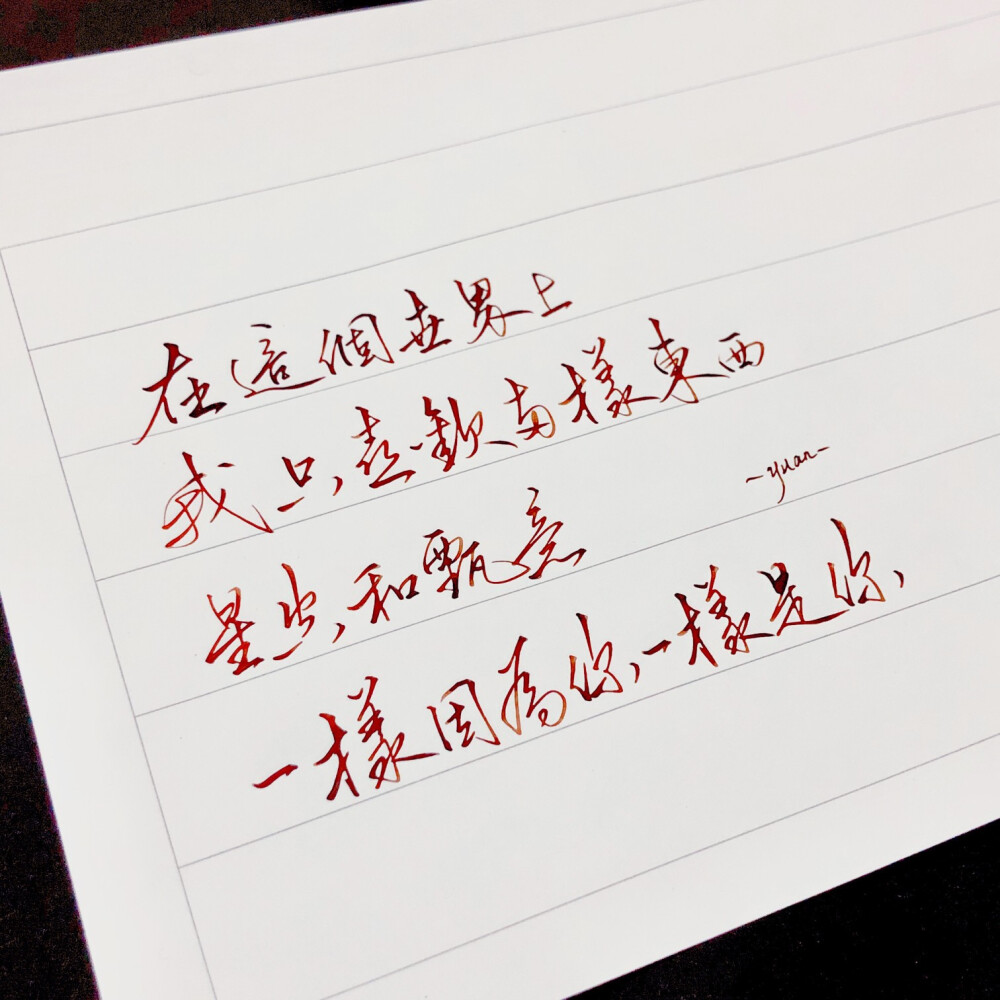 在這個世界上
我只喜歡两樣東西
星空和甄意
-yuan-
一樣因為你,一樣是你,